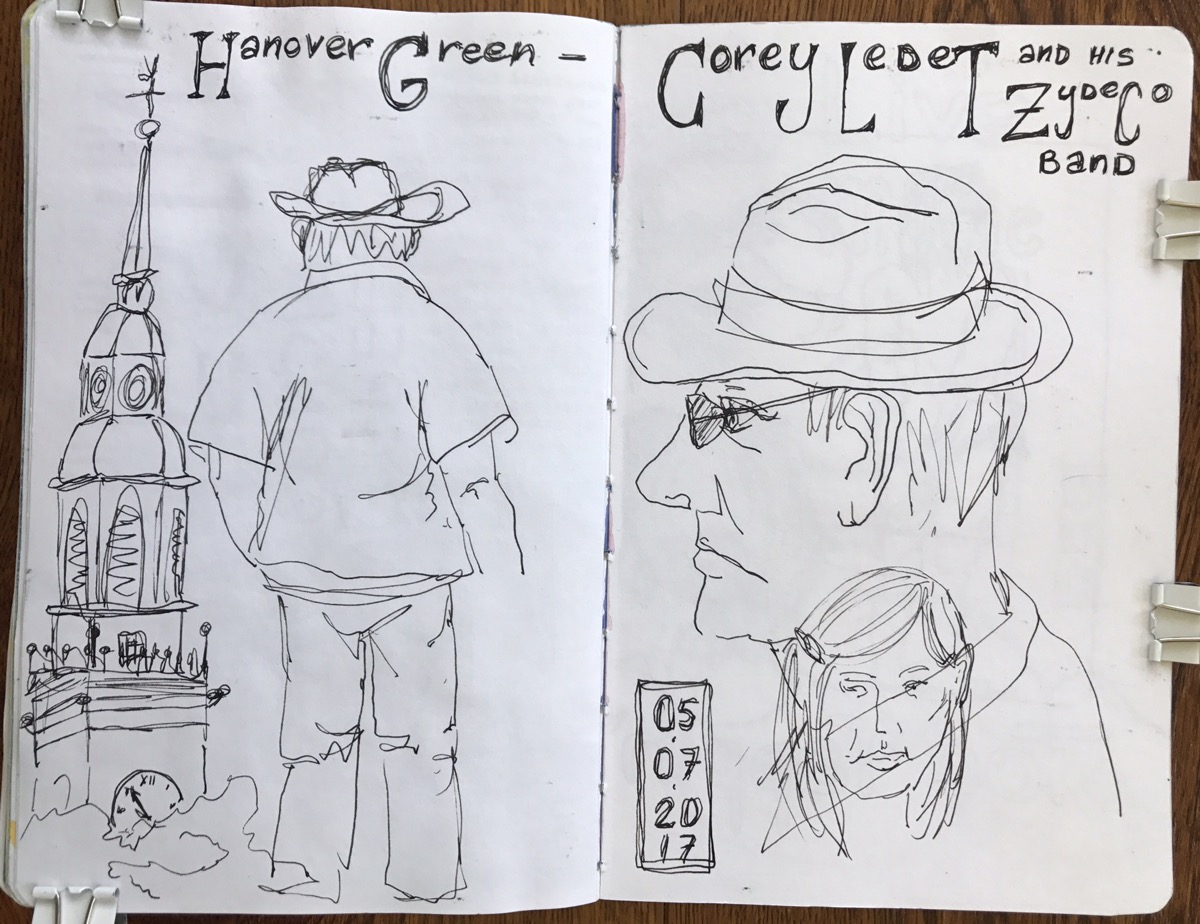 Hanover Green –
Corey LedeT and his
ZydeCo
Band
XII
05.
07.
20
17